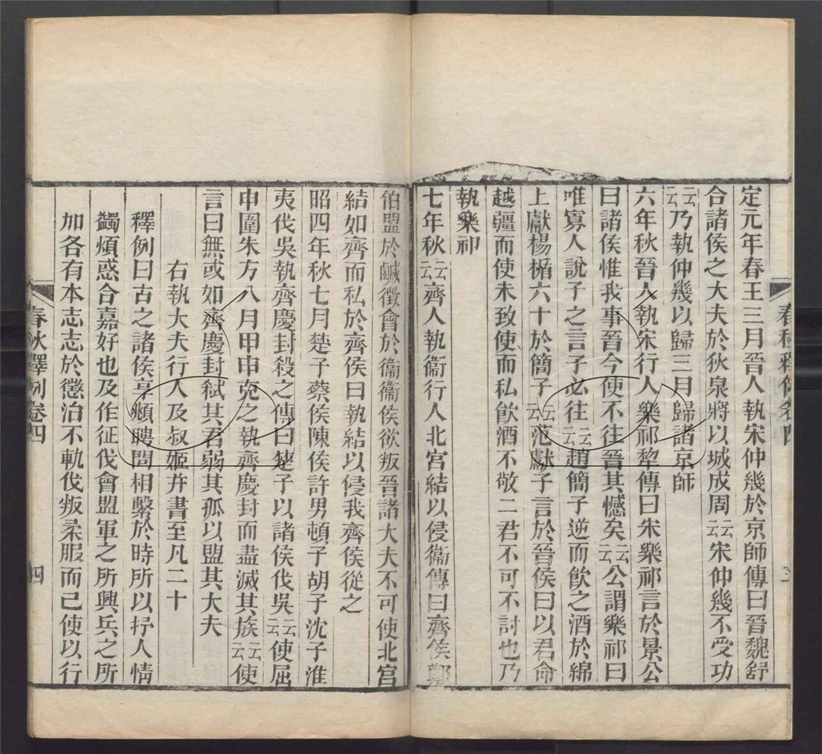 定元年春王三月晉人執宋仲幾於京師傳曰晉魏舒
合諸侯之大夫於狄泉將以城成周云云宋仲幾不受功
云云乃執仲幾以歸三月歸諸京師
六年秋晉人執宋行人樂祁犂傳曰宋樂祁言於景公
曰諸侯惟我事晉今使不往晉其憾矣云云公謂樂祁曰
唯寡人說子之言子必往云云趙簡子逆而飲之酒於緜
上獻楊楯六十於簡子云云范獻子言於晉侯曰以君命
越疆而使未致使而私飲酒不敬二君不可不討也乃
執樂祁
七年秋云云齊人執衞行人北宮結以侵衞傳曰齊侯鄭
伯盟於鹹徵會於衞衞侯欲叛晉諸大夫不可使北宮
結如齊而私於齊侯曰執結以侵我齊侯從之
昭四年秋七月楚子蔡侯陳侯許男頓子胡子沈子淮
夷伐吳執齊慶封殺之傳曰楚子以諸侯伐吳云云使屈
申圍朱方八月甲申克之執齊慶封而盡滅其族云云使
言曰無或如齊慶封弒其君弱其孤以盟其大夫
右執大夫行人及叔姬并書至凡二十
釋例曰古之諸侯享頫聘問相繫於時所以抒人情
蠲煩惑合嘉好也及作征伐會盟軍之所興兵之所
加各有本志志於懲治不軌伐叛柔服而已使以行
春秋釋例卷四
四